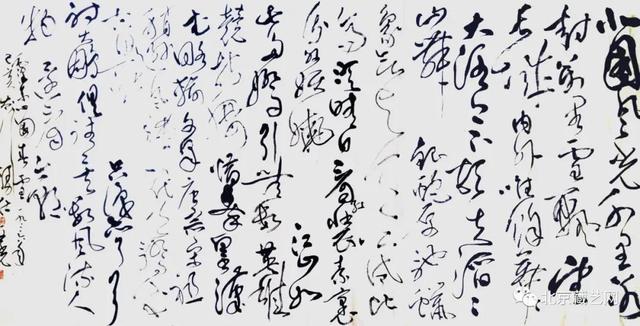 北国风光千里冰
封万里雪飘望
长城内外唯余莽莽
大河上下顿失滔滔
山舞银蛇原驰蜡
象欲与天公试比
高须晴日看红装素裹
分外妖娆江山如
此多娇引无数英雄
竞折腰惜秦皇汉
武略输文采唐宗宋祖
稍逊风骚一代天骄成
吉思汗只识弯弓
射大雕俱往矣数风流人
物还看今朝
毛泽东沁园春雪一九三六年
己亥
北京藏艺网